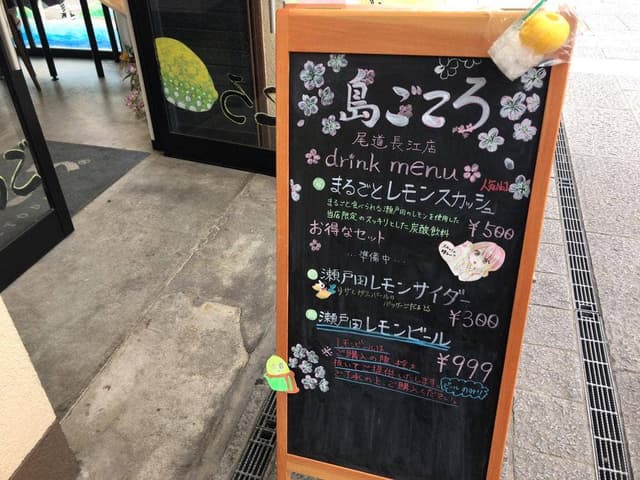 島ごころ
尾道長江店
drink menu
まるごとレモンスカッシュ
人気No.1
まるごと食べられる瀬戸田のレモンを使用した
当店限定のスッキリとした炭酸飲料
¥500
お得なセット
…準備中…
瀬戸田レモンサイダー
¥300
瀬戸田レモンビール
¥999
レモンビールは
ご購入の際、栓を
抜いてご提供いたします。
ご了承の上、ご購入ください。